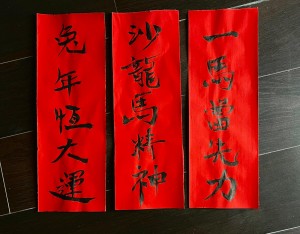 一馬當先力
沙龍馬精神
兔年恒大運